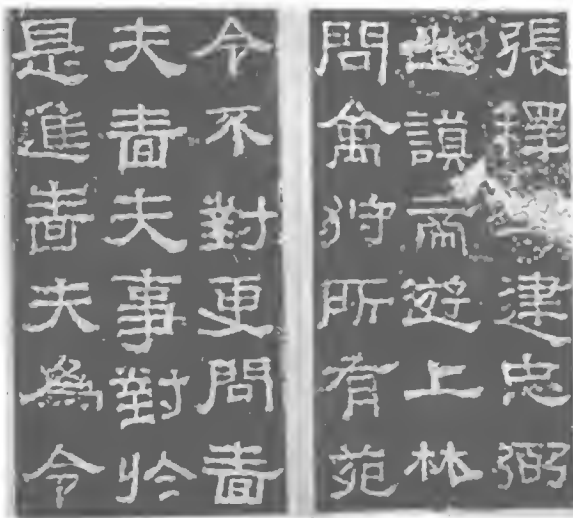 張釋建忠弼
謨帝遊上林
問禽狩所有苑
令不對更問嗇
夫嗇夫事對於
是進嗇夫為令